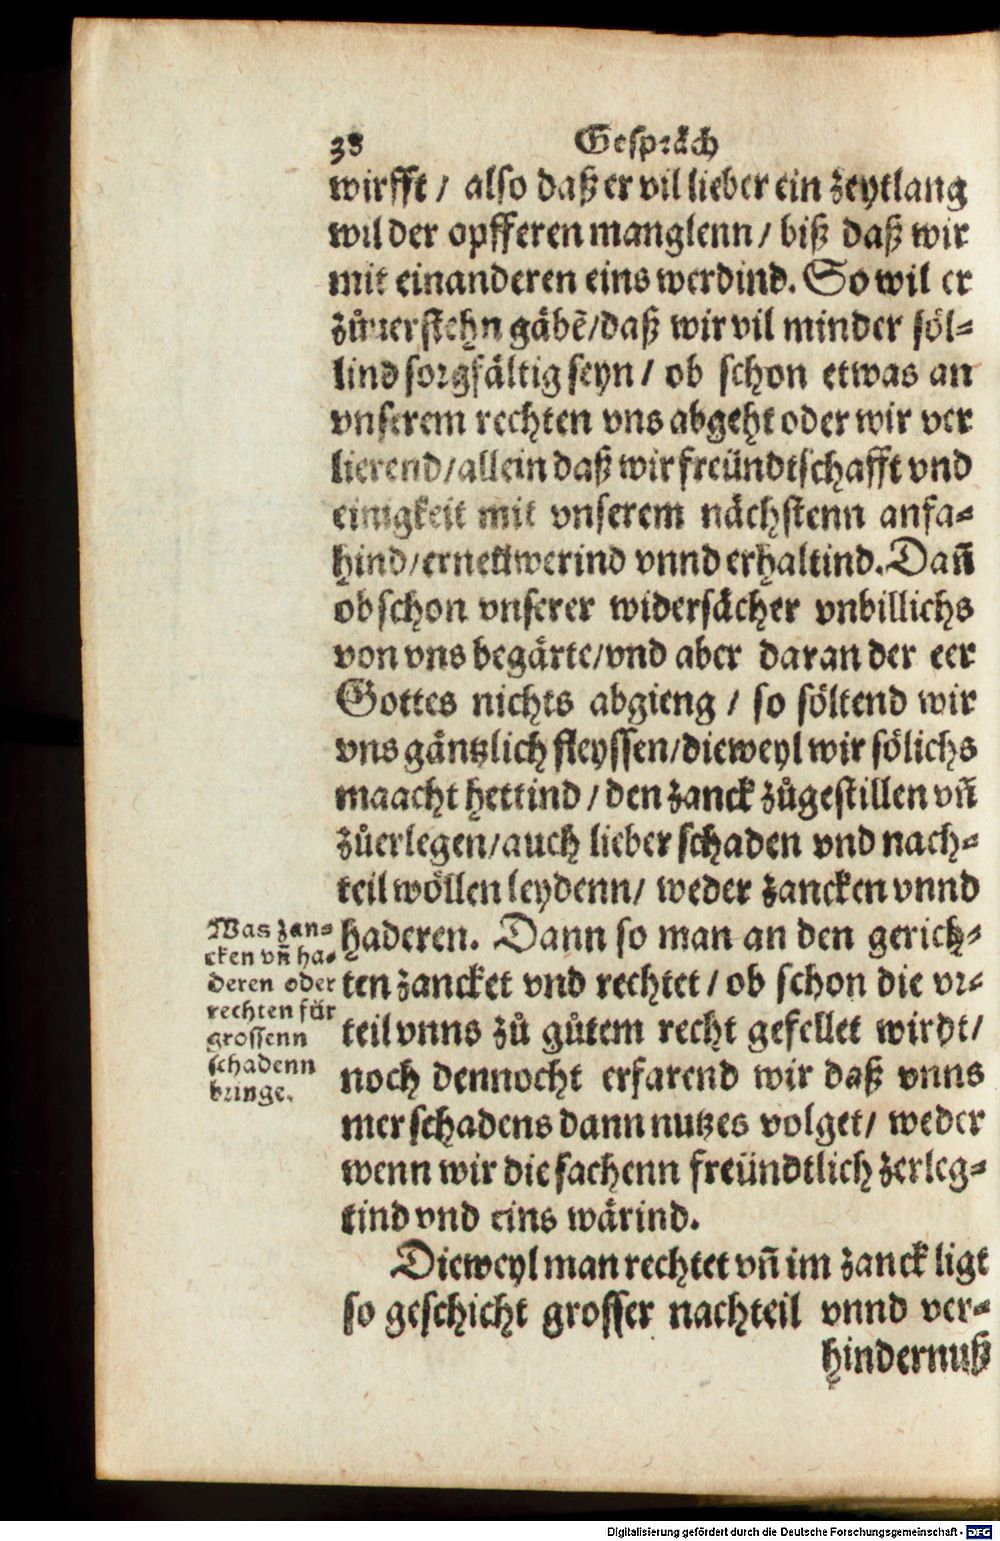 38 Gespräch
wirfft / also daß er vil lieber ein zeytlang
wil der opfferen manglenn / biß daß wir
mit einanderen eins werdind. So wil er
zůuerstehn gäbẽ/daß wir vil minder söl-
lind sorgfältig seyn / ob schon etwas an
vnserem rechten vns abgeht oder wir ver
lierend/allein daß wir freündtschafft vnd
einigkeit mit vnserem nächstenn anfa-
hind/ernewerind vnnd erhaltind. Dañ
ob schon vnserer widersächer vnbillichs
von vns begärte/vnd aber daran der eer
Gottes nichts abgieng / so söltend wir
vns gäntzlich fleyssen/dieweyl wir sölichs
maacht hettind / den zanck zůgestillen vñ
zůerlegen/auch lieber schaden vnd nach-
teil wöllen leydenn/ weder zancken vnnd
haderen. Dann so man an den gerich-
ten zancket vnd rechtet / ob schon die vr-
teil vnns zů gůtem recht gefellet wirdt/
noch dennocht erfarend wir daß vnns
mer schadens dann nutzes volget/ weder
wenn wir die sachenn freündtlich zerleg-
tind vnd eins wärind.
Dieweyl man rechtet vñ im zanck ligt
so geschicht grosser nachteil vnnd ver-
hindernuß
Was zan-
cken vñ ha-
deren oder
rechten für
grossenn
schadenn
bringe.
Digitalisierung gefördert durch die Deutsche Forschungsgemeinschaft - DFG